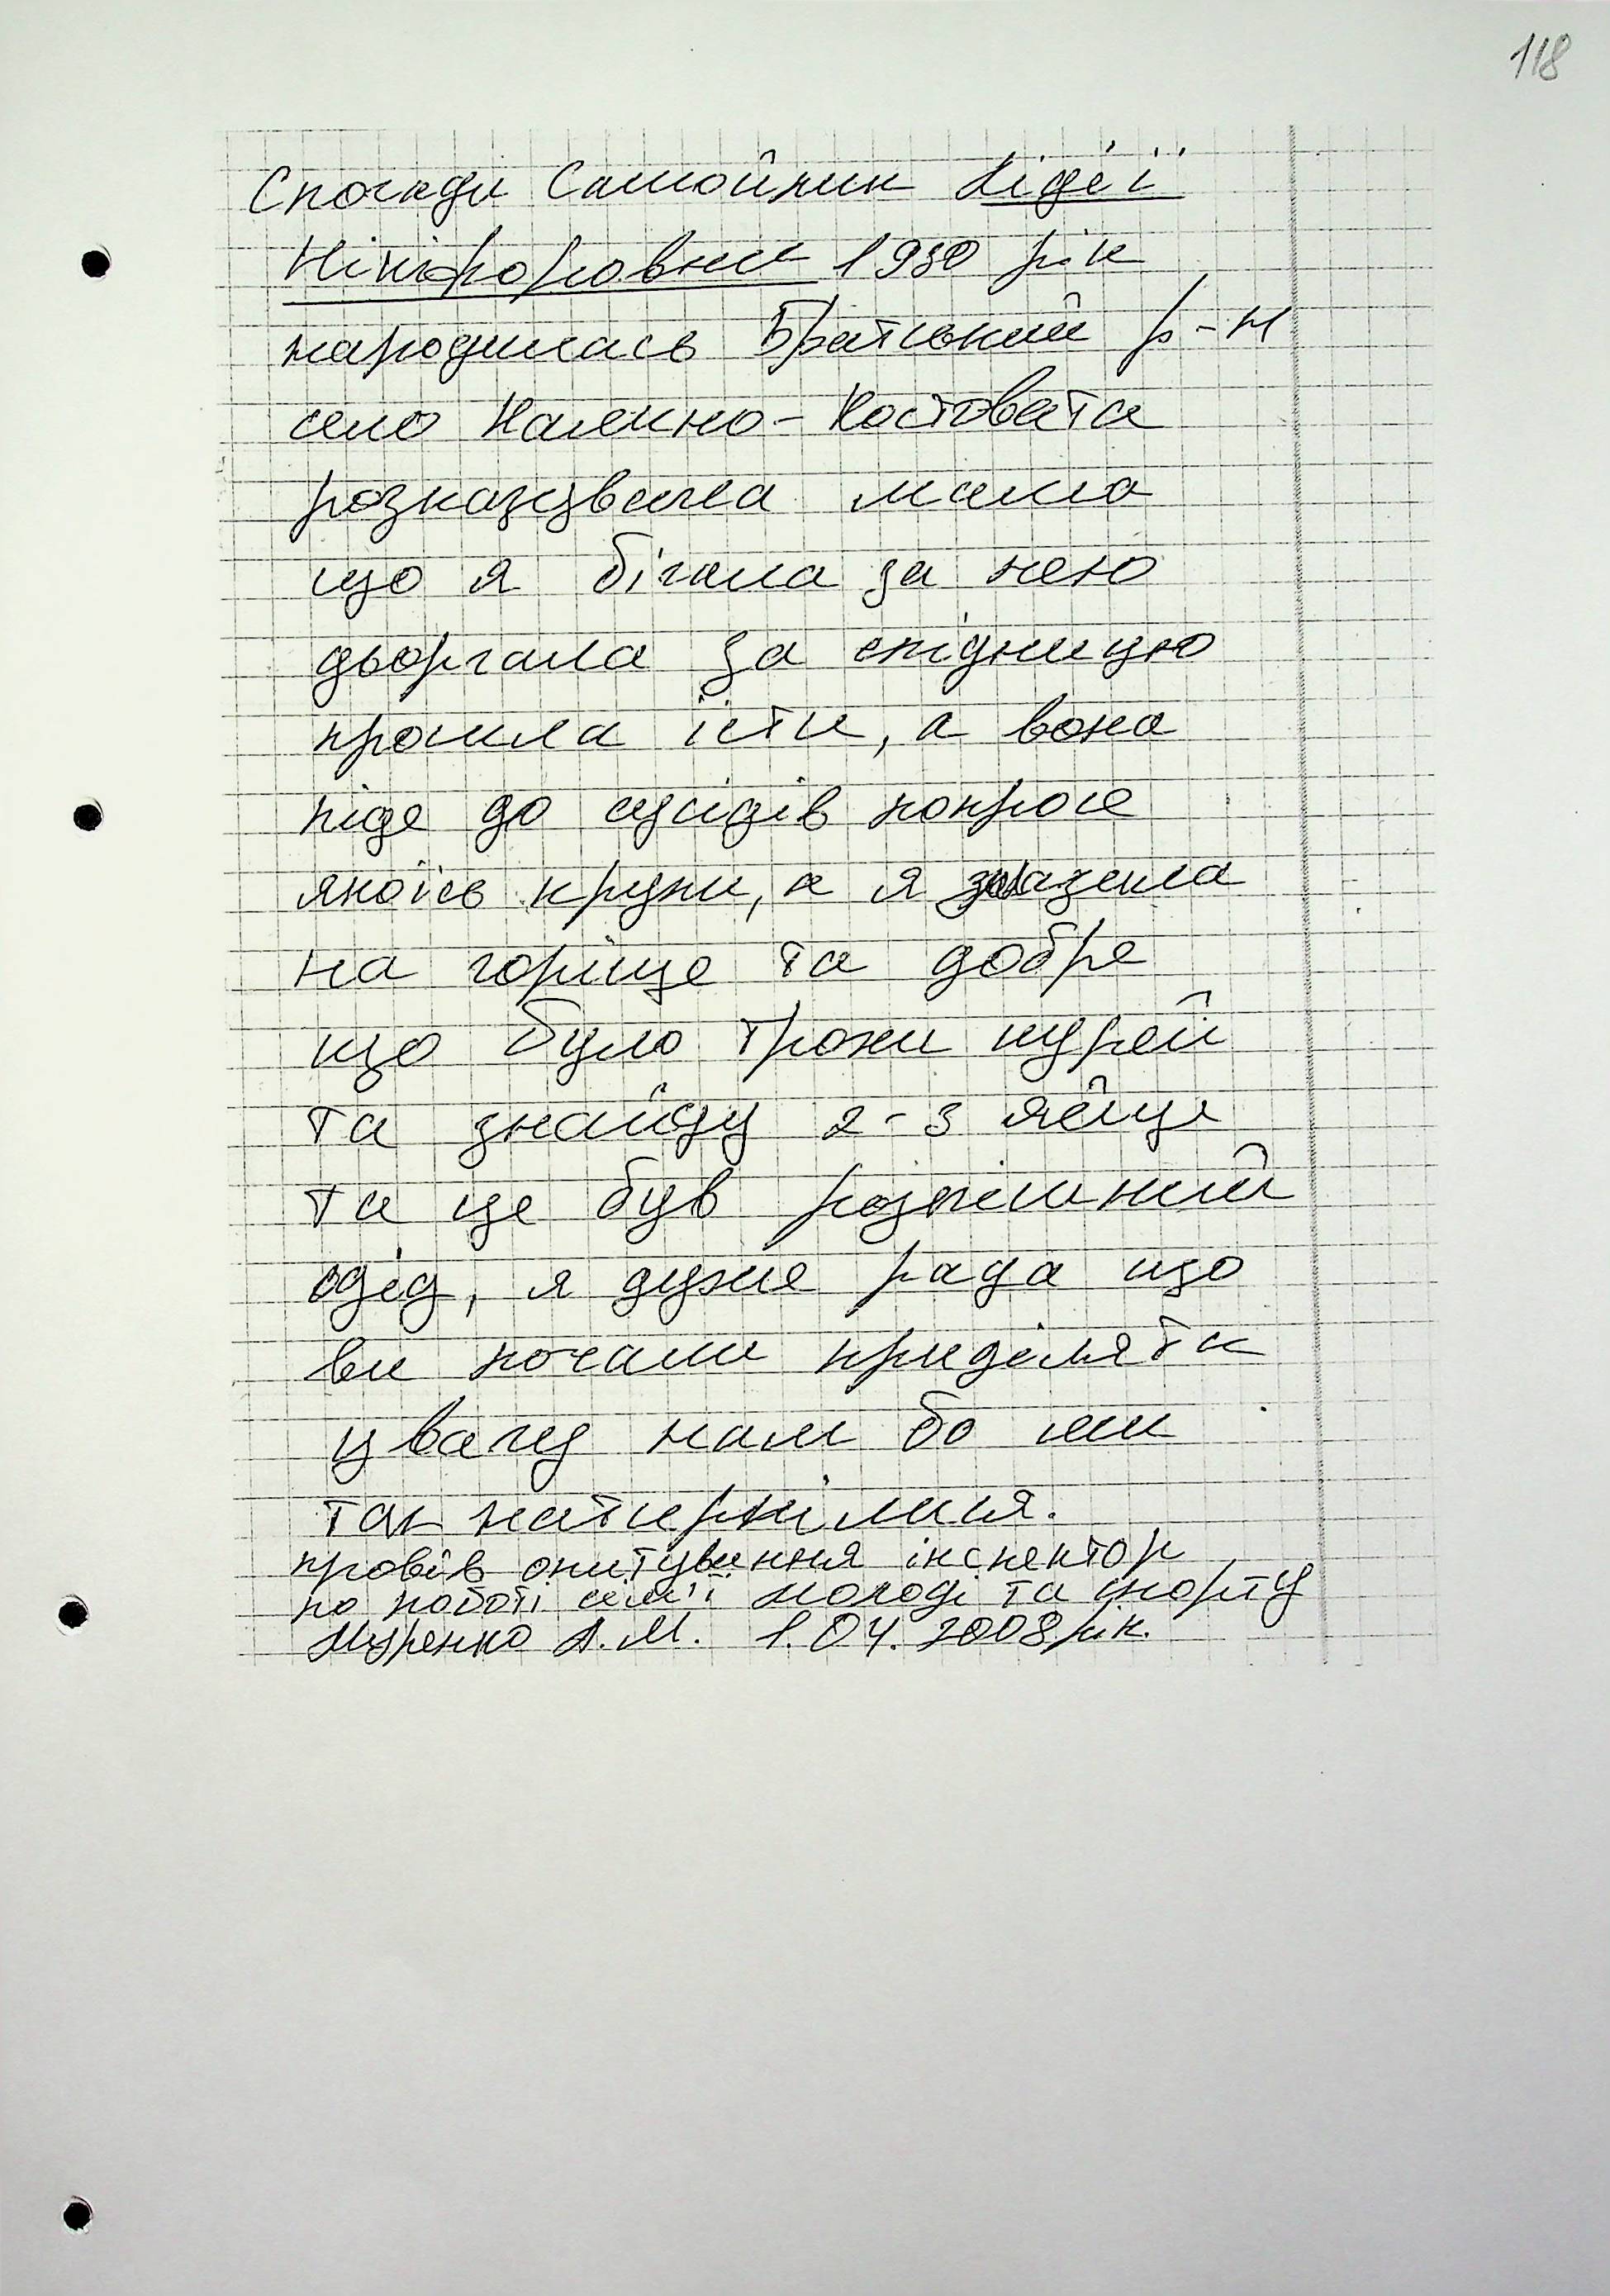 118
Спогади Самойлик Лідії
Нікіфоровни 1930 рік
народилась Братський р-н
село Камяно-Костовата
розказувала мама
що я бігала за нею
дьоргала за спідницю
просила їсти, а вона
піде до сусідів попросе
якоїсь крупи, а я залазила
на горище та добре
що було трохи курей
та знайду 2-3 яєйце
та це був розкішний
одід, я дуже рада що
ви почали приділяти
увагу нам бо ми
так натерпілися.
провів опитування інспектор
по роботі сім'ї молоді та спорту
Муренко А.М. 1.04.2008 рік.